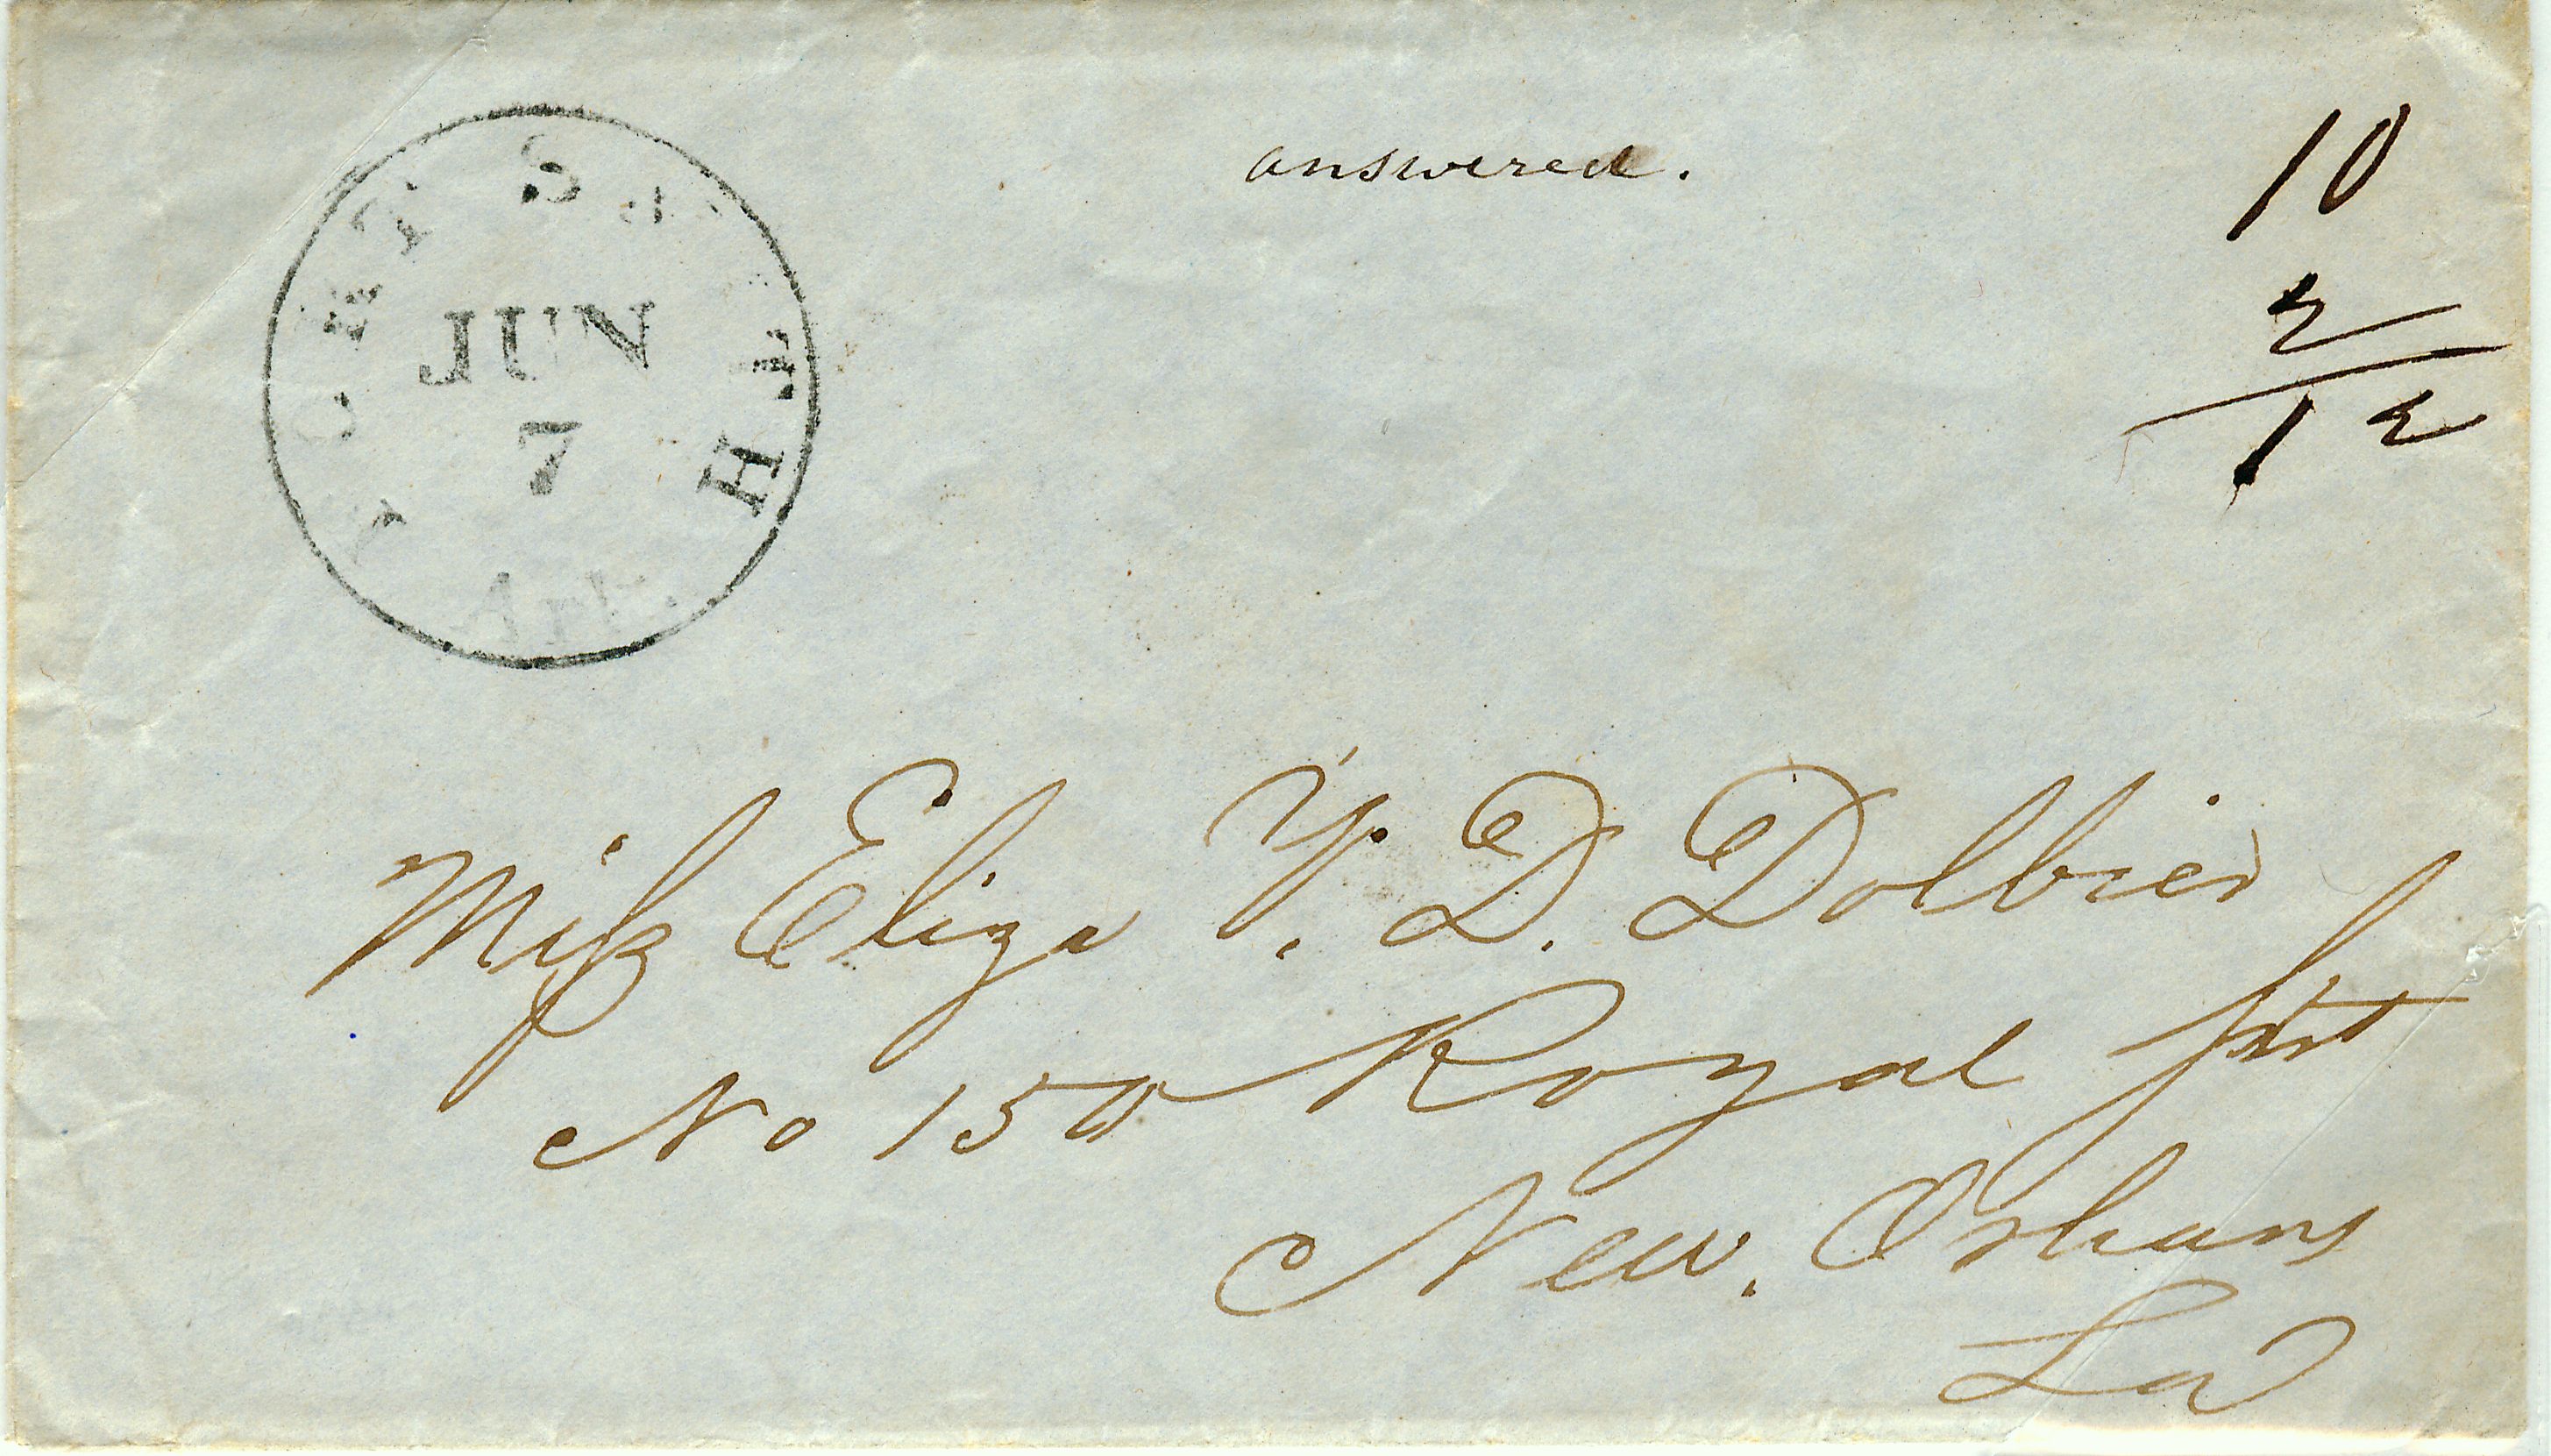 FORT SMITH
JUN
7
answered.
10
2
12
Miss Eliza V. D. Dolbier
No 150 Royal Street
New. Orleans
La